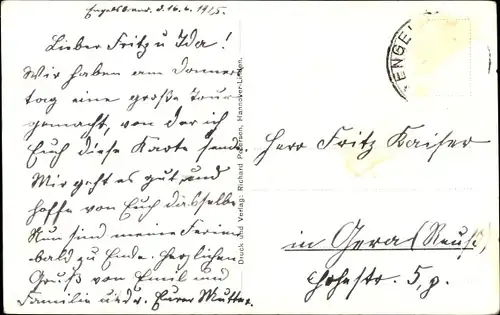 Engelsbrand, d. 16.6.1915.
Lieber Fritz u Ida!
Wir haben am Donners
tag eine große Tour
gemacht, von der ich
Euch diese Karte sende.
Mir geht es gut und
hoffe von Euch dasselbe.
Nun sind meine Ferien
bald zu Ende. Herzlichen
Gruß von Emil und
Familie und Eurer Mutter.
Druck und Verlag: Richard Petersen, Hannover-Linden.
ENGEL
Herr Fritz Kaiser
in Gera (Reuß)
Hohestr. 5, p.